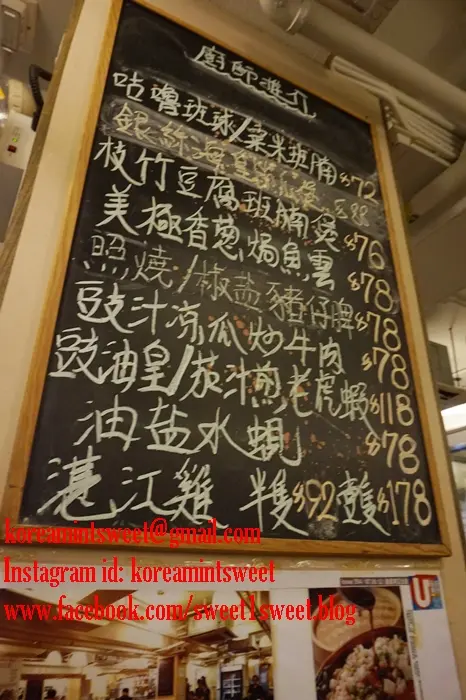 廚師推介
咕嚕班球/粟米班腩 $72
銀絲海皇粉絲煲
枝竹豆腐班腩煲 $76
美極香蔥焗魚雲 $78
照燒/椒盐豬仔脾 $78
豉汁凉瓜炒牛肉 $78
豉油皇/茄汁煎老虎蝦 $118
油盐水蜆 $78
湛江雞 半隻$92 壹隻$178
koreamintsweet@gmail.com
Instagram id: koreamintsweet
www.facebook.com/sweet1sweet.blog
U